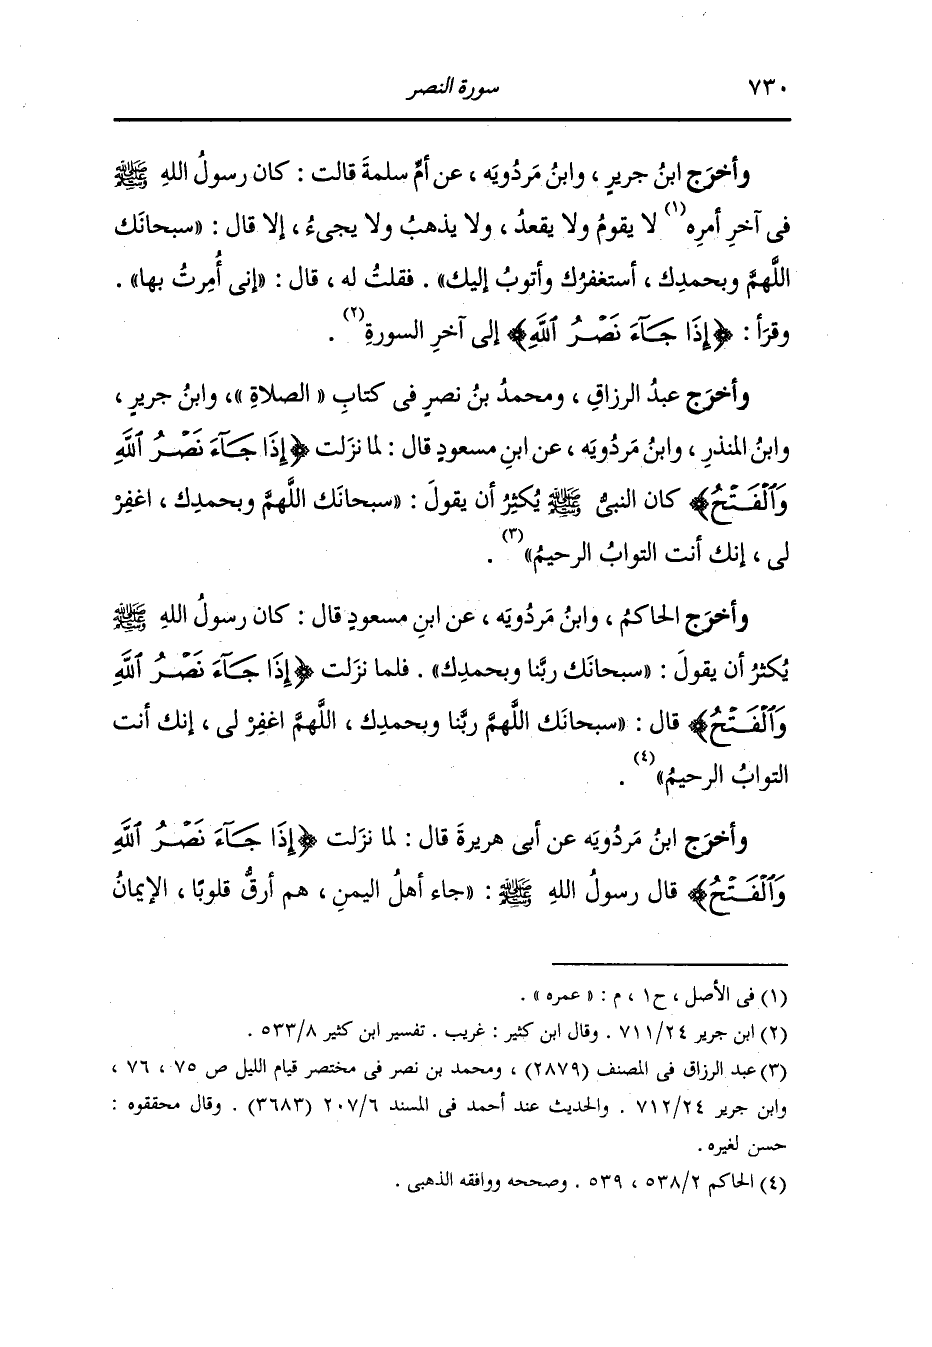 ٧٣٠ سورة النصر
وأخرَج ابنُ جريرٍ ، وابنُ مَردُويَه ، عن أمِّ سلمةَ قالت : كان رسولُ اللهِ ﷺ
فى آخرِ أمرِه(١) لا يقومُ ولا يقعدُ ، ولا يذهبُ ولا يجىءُ ، إلا قال : «سبحانَك
اللَّهمَّ وبحمدِك ، أستغفرُك وأتوبُ إليك» . فقلتُ له ، قال : «إنى أُمِرتُ بها» .
وقرَأ : ﴿إِذَا جَآءَ نَصْرُ ٱللَّهِ﴾ إلى آخرِ السورةِ(٢) .
وأخرَج عبدُ الرزاقِ ، ومحمدُ بنُ نصرٍ فى كتابِ « الصلاةِ »، وابنُ جريرٍ ،
وابنُ المنذرِ ، وابنُ مَردُويَه ، عن ابنِ مسعودٍ قال : لما نزَلت ﴿إِذَا جَآءَ نَصْرُ ٱللَّهِ
وَٱلْفَتْحُ﴾ كان النبىُّ ﷺ يُكثِرُ أن يقولَ : «سبحانَك اللَّهمَّ وبحمدِك ، اغفِرْ
لى ، إنك أنت التوابُ الرحيمُ»(٣) .
وأخرَج الحاكمُ ، وابنُ مَردُويَه ، عن ابنِ مسعودٍ قال : كان رسولُ اللهِ ﷺ
يُكثرُ أن يقولَ : «سبحانَك ربَّنا وبحمدِك» . فلما نزَلت ﴿إِذَا جَآءَ نَصْرُ ٱللَّهِ
وَٱلْفَتْحُ﴾ قال : «سبحانَك اللَّهمَّ ربَّنا وبحمدِك ، اللَّهمَّ اغفِرْ لى ، إنك أنت
التوابُ الرحيمُ»(٤) .
وأخرَج ابنُ مَردُويَه عن أبى هريرةَ قال : لما نزَلت ﴿إِذَا جَآءَ نَصْرُ ٱللَّهِ
وَٱلْفَتْحُ﴾ قال رسولُ اللهِ ﷺ : «جاء أهلُ اليمنِ ، هم أرقُّ قلوبًا ، الإيمانُ
(١) فى الأصل ، ح١ ، م : « عمره » .
(٢) ابن جرير ٧١١/٢٤ . وقال ابن كثير : غريب . تفسير ابن كثير ٥٣٣/٨ .
(٣) عبد الرزاق فى المصنف (٢٨٧٩) ، ومحمد بن نصر فى مختصر قيام الليل ص ٧٥ ، ٧٦ ،
وابن جرير ٧١٢/٢٤ . والحديث عند أحمد فى المسند ٢٠٧/٦ (٣٦٨٣) . وقال محققوه :
حسن لغيره .
(٤) الحاكم ٥٣٨/٢ ، ٥٣٩ . وصححه ووافقه الذهبى .